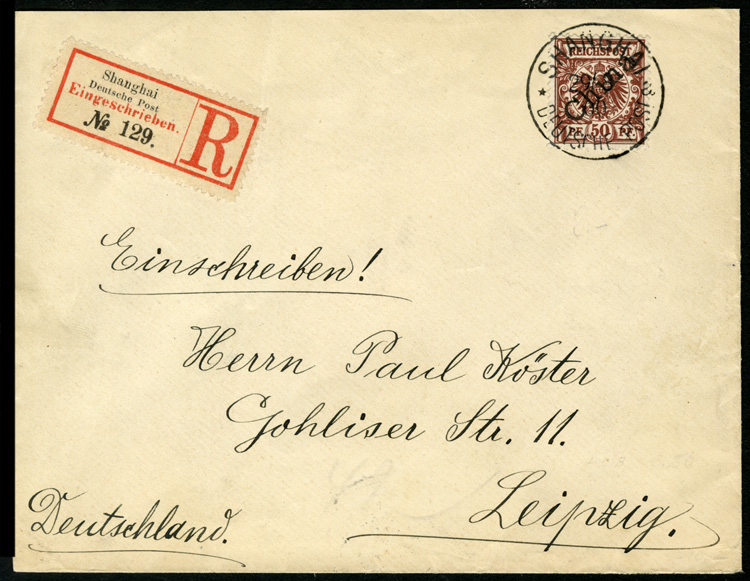 Shanghai
Deutsche Post
Eingeschrieben.
№ 129.
R
REICHSPOST
China
PF. 50 PF.
SHANGHAI
DEUTSCHE
Einschreiben!
Herrn Paul Köster
Gohliser Str. 11.
Leipzig.
Deutschland.